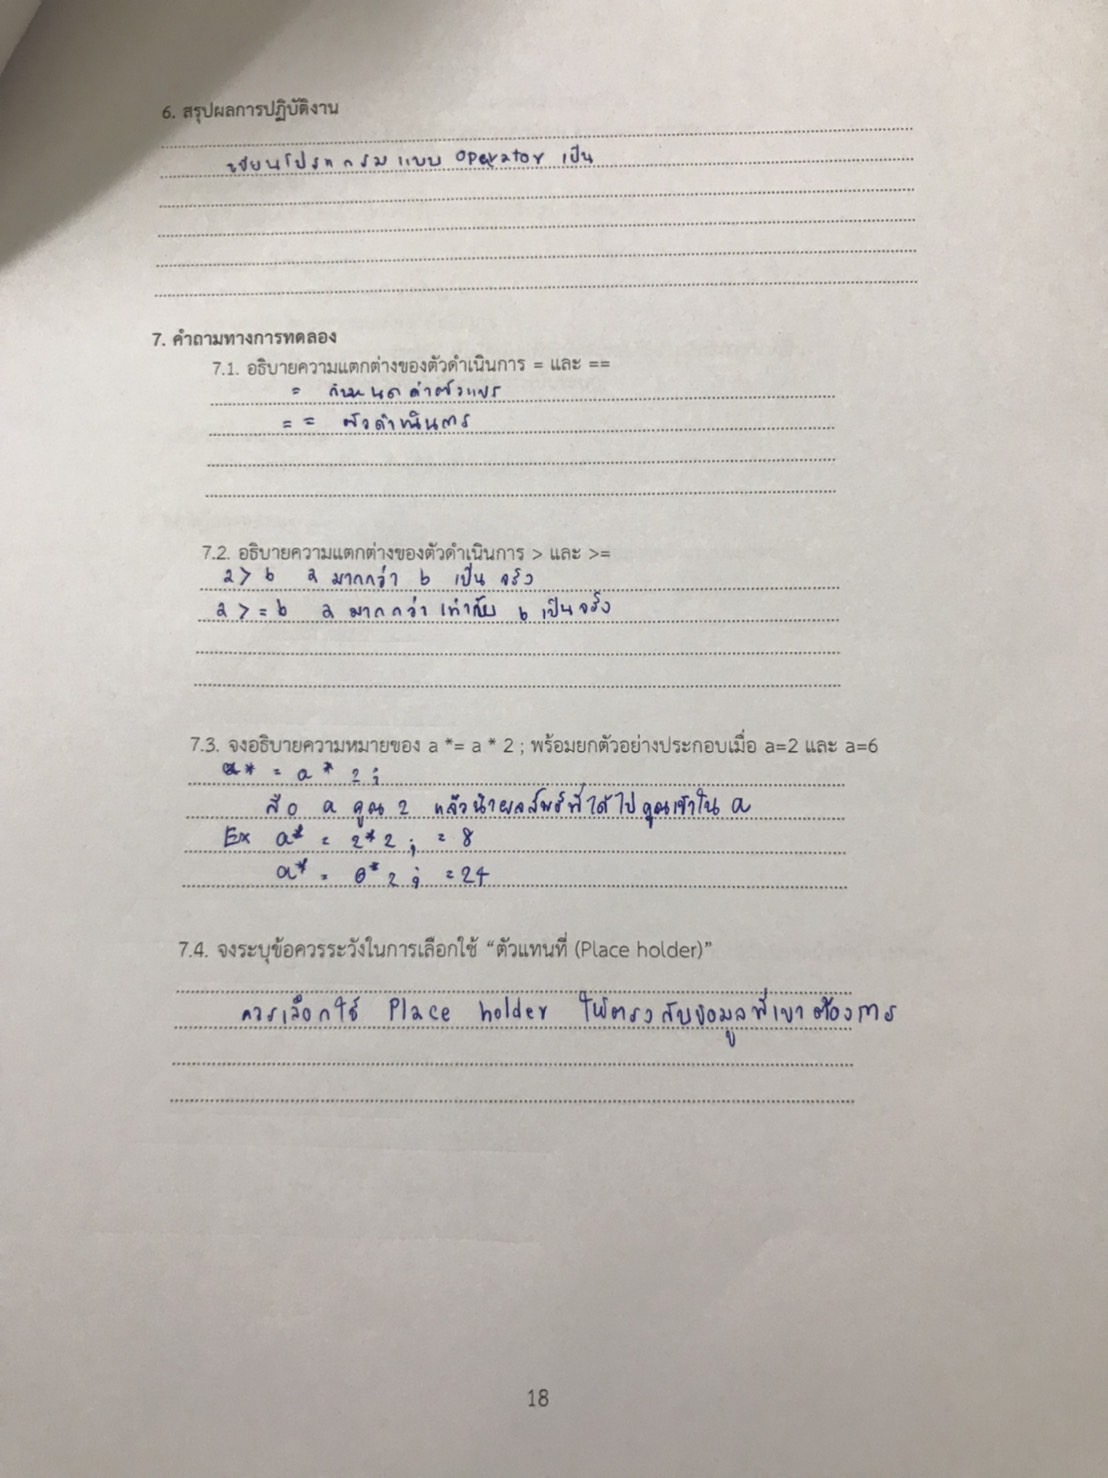 6. สรุปผลการปฏิบัติงาน
เขียนโปรแกรมแบบ operator เป็น
7. คำถามทางการทดลอง
7.1. อธิบายความแตกต่างของตัวดำเนินการ = และ ==
= กำหนดค่าตัวแปร
== ตัวดำเนินการ
7.2. อธิบายความแตกต่างของตัวดำเนินการ > และ >=
a > b a มากกว่า b เป็น จริง
a >= b a มากกว่า เท่ากับ b เป็นจริง
7.3. จงอธิบายความหมายของ a *= a * 2 ; พร้อมยกตัวอย่างประกอบเมื่อ a=2 และ a=6
a* = a * 2 ;
คือ a คูณ 2 แล้วนำผลลัพธ์ที่ได้ไปคูณเข้าใน a
Ex a* = 2*2 ; = 8
a* = 6*2 ; = 24
7.4. จงระบุข้อควรระวังในการเลือกใช้ “ตัวแทนที่ (Place holder)”
ควรเลือกใช้ Place holder ให้ตรงกับข้อมูลที่เขาต้องการ
18